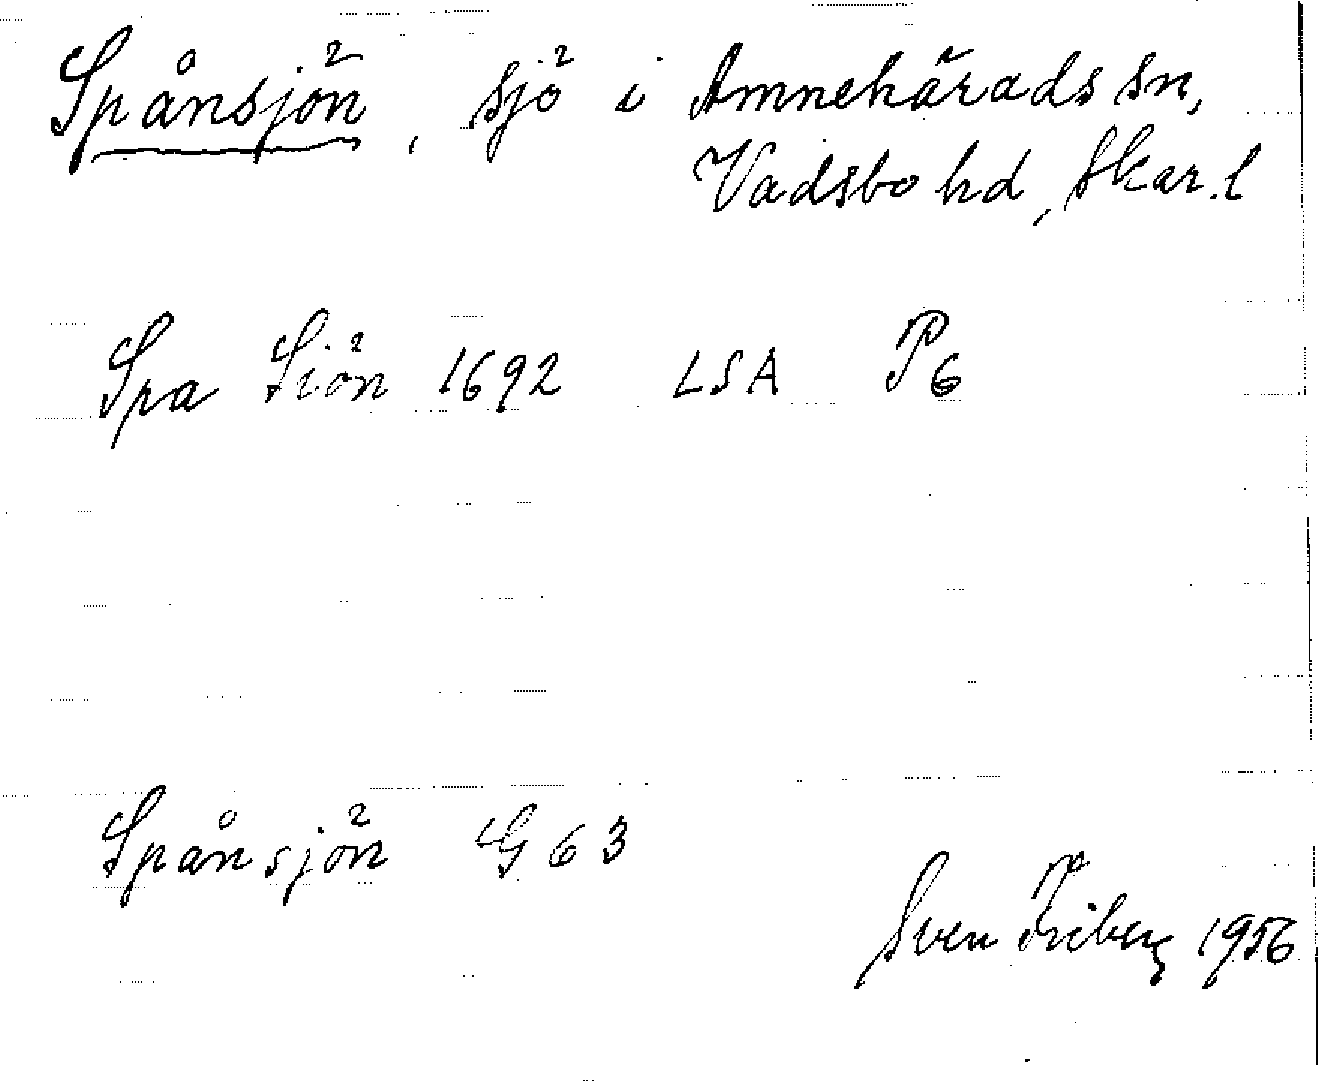 Spånsjön, sjö i Amnehärads sn,
Vadsbo hd, Skar.l
Spa Siön 1692 LSA P6
Spånsjön G 63
Sven Friberg 1956